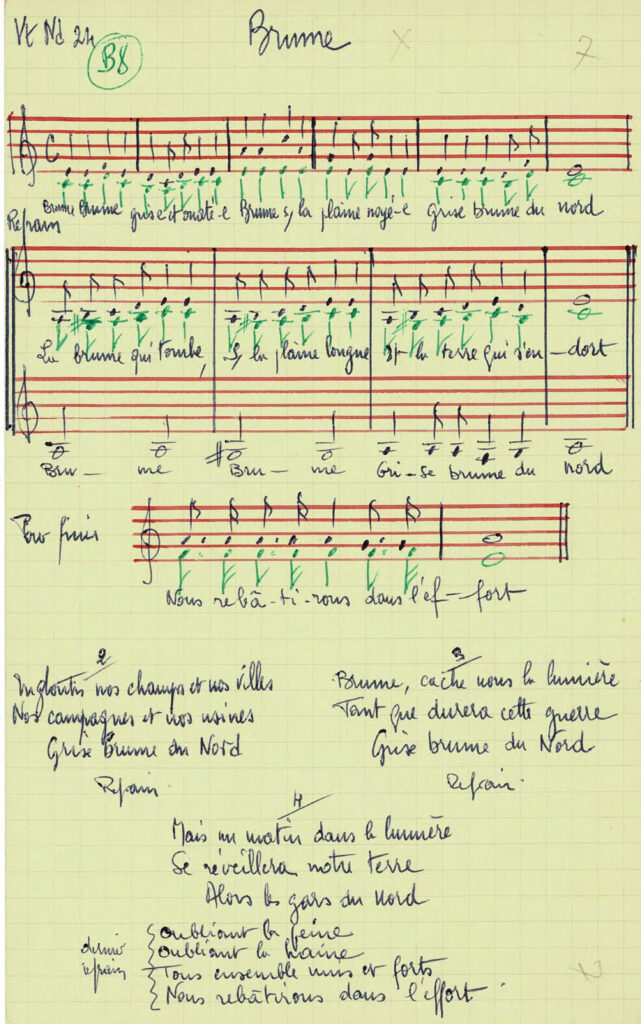 Vt Nd 24
B8
Brume
x
7
Brume Brume grise et ouaté-e Brume s/ la plaine noyé-e grise brume du nord
Refrain
La brume qui tombe, s/ la plaine longue Et la terre qui s'en-dort
Bru - me Bru - me Gri-se brume du nord
Pour finir
Nous rebâ-ti-rons dans l'ef-fort
2
Engloutis nos champs et nos villes
Nos campagnes et nos usines
Grise brume du Nord
Refrain
3
Brume, cache nous la lumière
Tant que durera cette guerre
Grise brume du Nord
Refrain.
4
Mais un matin dans la lumière
Se réveillera notre terre
Alors les gars du nord
dernier refrain
oubliant la peine
oubliant la haine
Tous ensemble unis et forts
Nous rebâtirons dans l'effort